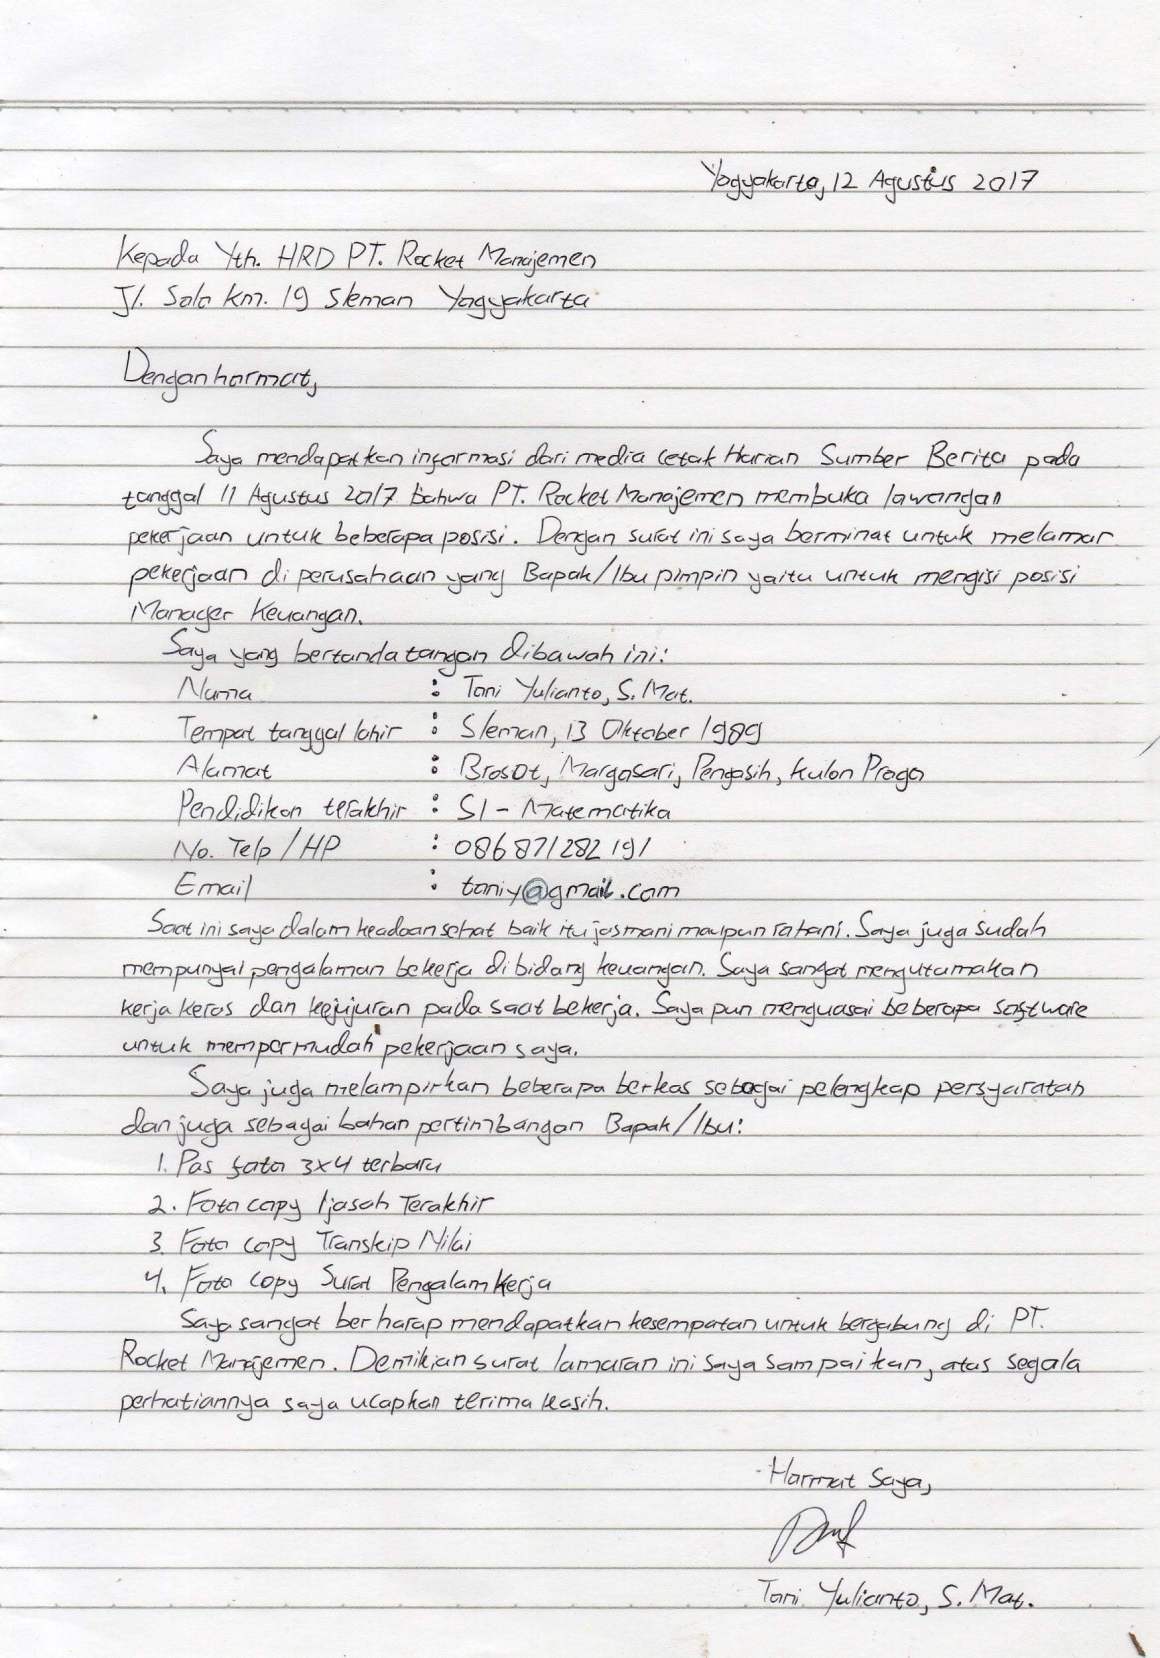 Yogyakarta, 12 Agustus 2017
Kepada Yth. HRD PT. Rocket Manajemen
Jl. Solo Km. 19 Sleman Yogyakarta
Dengan hormat,
Saya mendapatkan informasi dari media cetak Harian Sumber Berita pada
tanggal 11 Agustus 2017 bahwa PT. Rocket Manajemen membuka lawangan
pekerjaan untuk beberapa posisi. Dengan surat ini saya berminat untuk melamar
pekerjaan di perusahaan yang Bapak/Ibu pimpin yaitu untuk mengisi posisi
Manager Keuangan.
Saya yang bertanda tangan dibawah ini:
Nama : Toni Yulianto, S. Mat.
Tempat tanggal lahir : Sleman, 13 Oktober 1989
Alamat : Brosot, Margosari, Pengasih, Kulon Progo
Pendidikan terakhir : S1 - Matematika
No. Telp/HP : 086871282191
Email : toniy@gmail.com
Saat ini saya dalam keadaan sehat baik itu jasmani maupun rohani. Saya juga sudah
mempunyai pengalaman bekerja di bidang keuangan. Saya sangat mengutamakan
kerja keras dan kejujuran pada saat bekerja. Saya pun menguasai beberapa software
untuk mempermudah pekerjaan saya.
Saya juga melampirkan beberapa berkas sebagai pelengkap persyaratan
dan juga sebagai bahan pertimbangan Bapak/Ibu:
1. Pas foto 3x4 terbaru
2. Foto copy Ijasah Terakhir
3. Foto copy Transkip Nilai
4. Foto copy Surat Pengalam Kerja
Saya sangat berharap mendapatkan kesempatan untuk bergabung di PT.
Rocket Manajemen. Demikian surat lamaran ini saya sampaikan, atas segala
perhatiannya saya ucapkan terima kasih.
Hormat Saya,
Toni Yulianto, S. Mat.